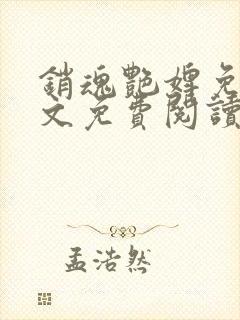 銷魂艷婢免
文免費閱讀
孟浩然